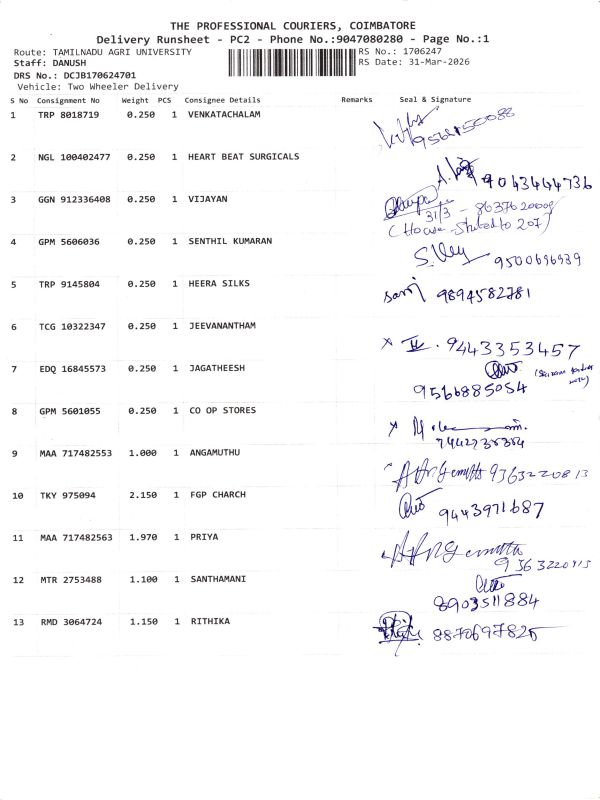 THE PROFESSIONAL COURIERS, COIMBATORE
Delivery Runsheet - PC2 - Phone No.:9047080280 - Page No.:1
Route: TAMILNADU AGRI UNIVERSITY RS No.: 1706247
Staff: DANUSH RS Date: 31-Mar-2026
DRS No.: DCJB170624701
Vehicle: Two Wheeler Delivery
S No Consignment No Weight PCS Consignee Details Remarks Seal & Signature
1 TRP 8018719 0.250 1 VENKATACHALAM
2 NGL 100402477 0.250 1 HEART BEAT SURGICALS
9043444736
3 GGN 912336408 0.250 1 VIJAYAN
31/3 - 8637620009
(House shifted to 207)
4 GPM 5606036 0.250 1 SENTHIL KUMARAN
9500696939
5 TRP 9145804 0.250 1 HEERA SILKS
9894582781
6 TCG 10322347 0.250 1 JEEVANANTHAM
9443353457
7 EDQ 16845573 0.250 1 JAGATHEESH
9566885054
8 GPM 5601055 0.250 1 CO OP STORES
9 MAA 717482553 1.000 1 ANGAMUTHU
9363220813
10 TKY 975094 2.150 1 FGP CHARCH
9443971687
11 MAA 717482563 1.970 1 PRIYA
12 MTR 2753488 1.100 1 SANTHAMANI
8903511884
13 RMD 3064724 1.150 1 RITHIKA
8870697825